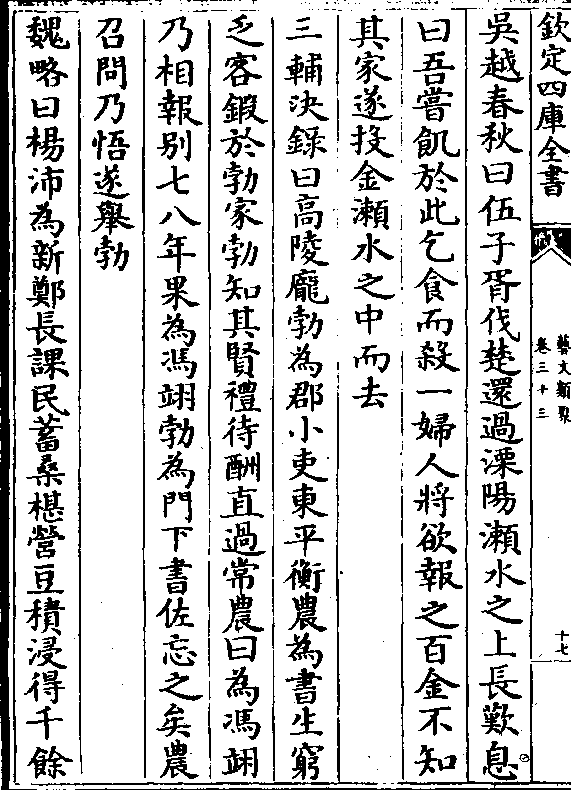 欽定四庫全書
藝文類聚
卷三十三
十七
吳越春秋曰伍子胥伐楚還過溧陽瀨水之上長歎息
曰吾嘗飢於此乞食而殺一婦人將欲報之百金不知
其家遂投金瀨水之中而去
三輔決錄曰高陵龐勃為郡小吏東平衡農為書生窮
乏客鍜於勃家勃知其賢禮待酬直過常農曰為馮翊
乃相報别七八年果為馮翊勃為門下書佐忘之矣農
召問乃悟遂舉勃
魏略曰楊沛為新鄭長課民蓄桑椹營豆積浸得千餘